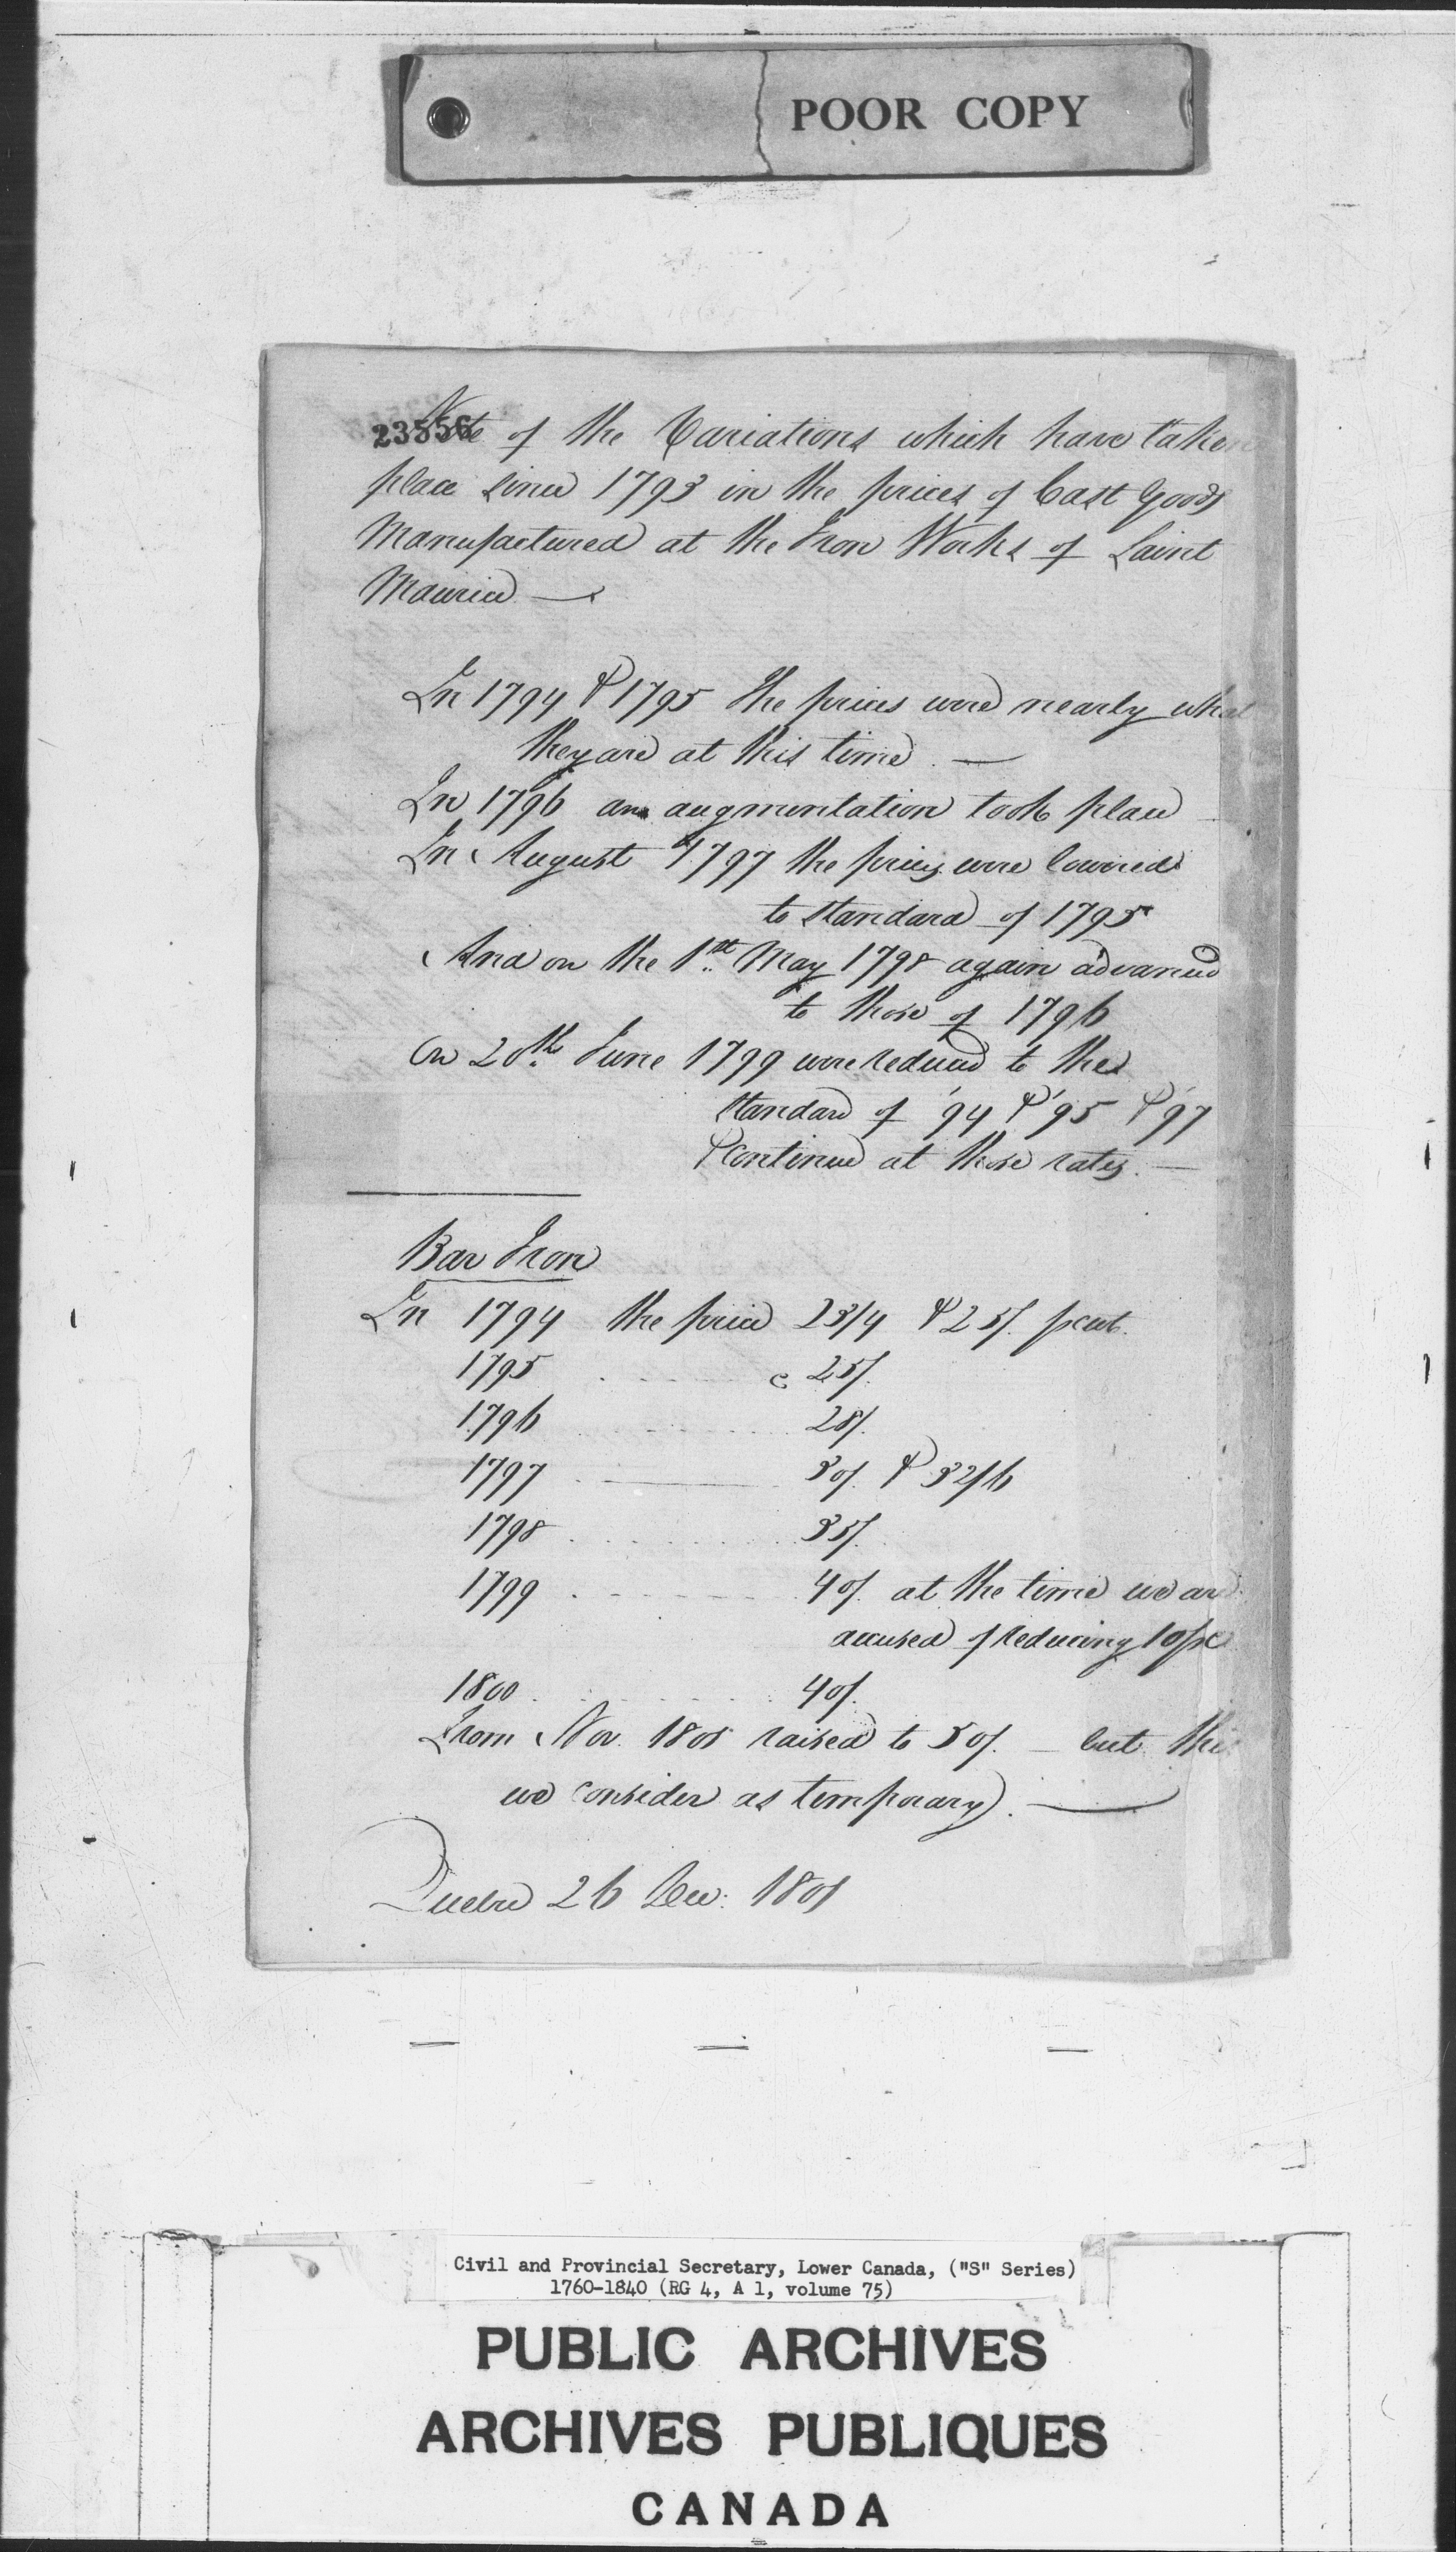 POOR COPY
23556
Note of the Variations which have taken
place since 1793 in the prices of Cast Goods
Manufactured at the Iron Works of Saint
Maurice —
In 1794 & 1795 the prices were nearly what
they are at this time. —
In 1796 an augmentation took place
In August 1797 the prices were lowered
to standard of 1795
And on the 1st May 1798 again advanced
to those of 1796
On 20th June 1799 were reduced to the
standard of '94 & '95 & '97
& continue at those rates. —
Bar Iron
In 1794 the price 23/4 & 25/. pcwt.
1795 25/.
1796 28/.
1797 — 30/. & 32/6
1798 35/.
1799 40/. at the time we are
accused of reducing 10/
1800 40/.
From Nov. 1801 raised to 50/. — but this
we consider as temporary. —
Quebec 26 Dec: 1801
Civil and Provincial Secretary, Lower Canada, ("S" Series)
1760-1840 (RG 4, A 1, volume 75)
PUBLIC ARCHIVES
ARCHIVES PUBLIQUES
CANADA